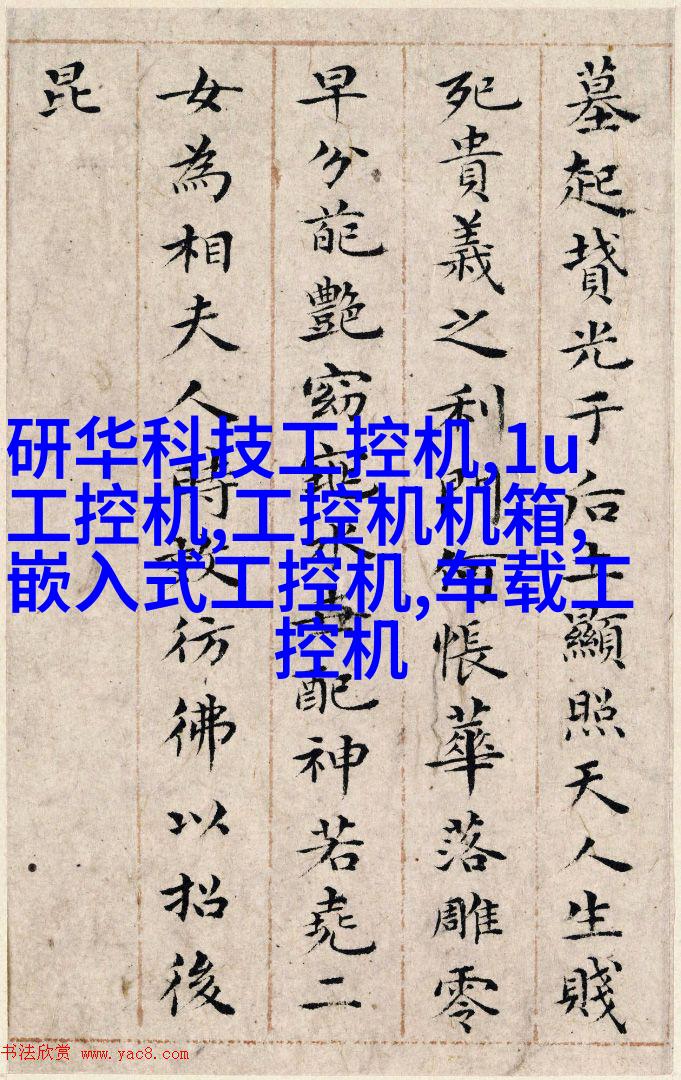 墓起墳光于后土顯照天人生賤
死貴義之利門何悵華落雕零
早分葩艷窈窕永世配神若堯二
女為相夫人時效彷彿以招後
昆
研华科技工控机,1u
工控机,工控机机箱,
嵌入式工控机,车载工
控机
书法欣赏 www.yac8.com